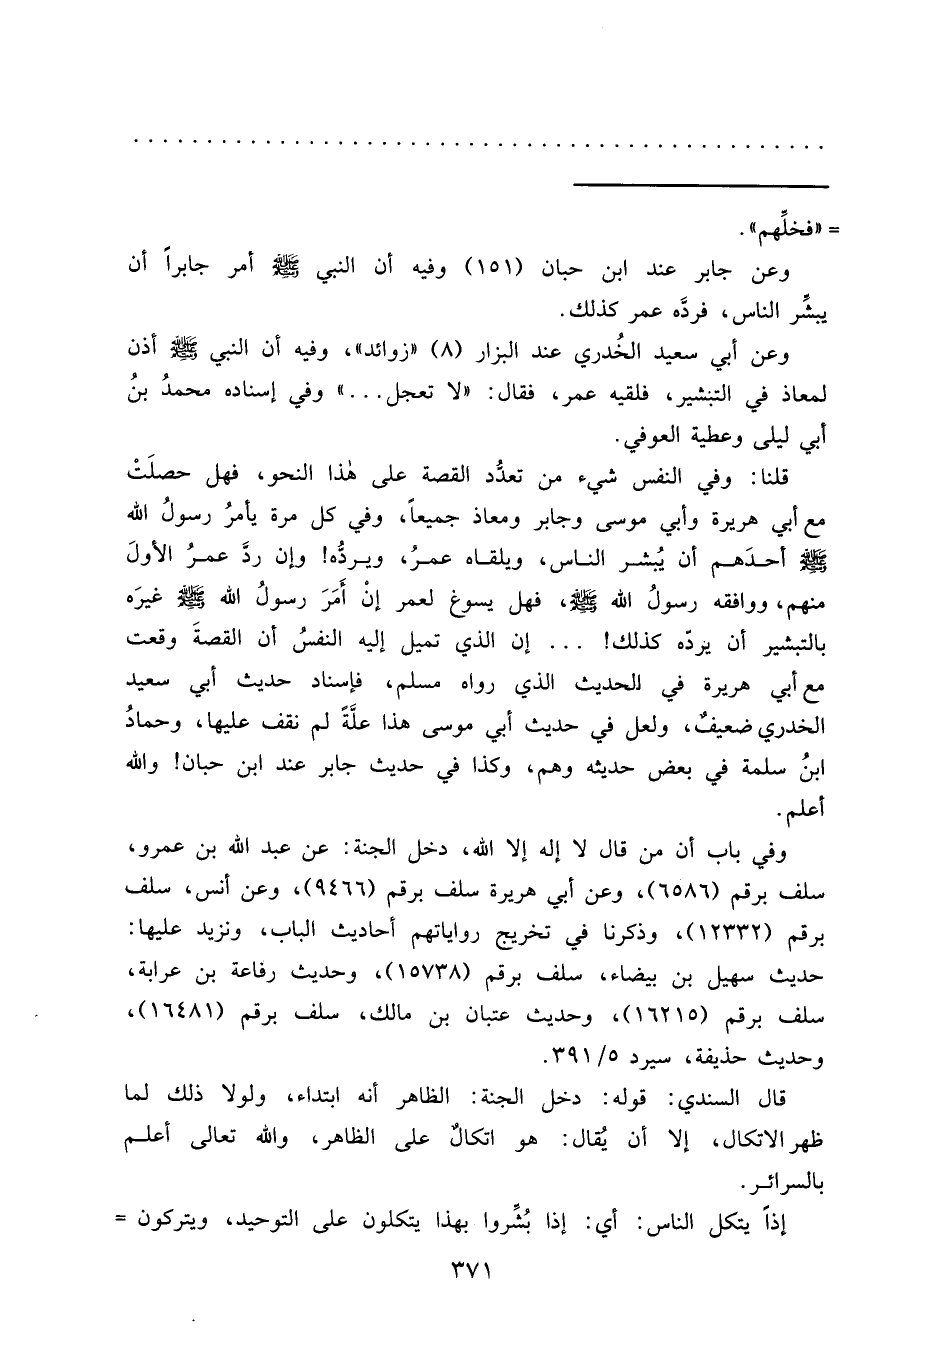 . . . . . . . . . . . . . . . . . . . . . . . . . . . . . . . . . . . . . . . . . . . . . . . .
= «فخلِّهم».
وعن جابر عند ابن حبان (١٥١) وفيه أن النبي ﷺ أمر جابراً أن
يبشِّر الناس، فردَّه عمر كذلك.
وعن أبي سعيد الخُدري عند البزار (٨) «زوائد»، وفيه أن النبي ﷺ أذن
لمعاذ في التبشير، فلقيه عمر، فقال: «لا تعجل...» وفي إسناده محمدُ بنُ
أبي ليلى وعطية العوفي.
قلنا: وفي النفس شيء من تعدُّد القصة على هٰذا النحو، فهل حصلَتْ
مع أبي هريرة وأبي موسى وجابر ومعاذ جميعاً، وفي كل مرة يأمرُ رسولُ الله
ﷺ أحدَهم أن يُبشر الناس، ويلقاه عمرُ، ويردُّه! وإن ردَّ عمرُ الأولَ
منهم، ووافقه رسولُ الله ﷺ، فهل يسوغ لعمر إنْ أَمَرَ رسولُ الله ﷺ غيرَه
بالتبشير أن يردّه كذلك! ... إن الذي تميل إليه النفسُ أن القصةَ وقعت
مع أبي هريرة في الحديث الذي رواه مسلم، فإسناد حديث أبي سعيد
الخدري ضعيفٌ، ولعل في حديث أبي موسى هذا علَّةً لم نقف عليها، وحمادُ
ابنُ سلمة في بعض حديثه وهم، وكذا في حديث جابر عند ابن حبان! والله
أعلم.
وفي باب أن من قال لا إله إلا الله، دخل الجنة: عن عبد الله بن عمرو،
سلف برقم (٦٥٨٦)، وعن أبي هريرة سلف برقم (٩٤٦٦)، وعن أنس، سلف
برقم (١٢٣٣٢)، وذكرنا في تخريج رواياتهم أحاديث الباب، ونزيد عليها:
حديث سهيل بن بيضاء، سلف برقم (١٥٧٣٨)، وحديث رفاعة بن عرابة،
سلف برقم (١٦٢١٥)، وحديث عتبان بن مالك، سلف برقم (١٦٤٨١)،
وحديث حذيفة، سيرد ٣٩١/٥.
قال السندي: قوله: دخل الجنة: الظاهر أنه ابتداء، ولولا ذلك لما
ظهر الاتكال، إلا أن يُقال: هو اتكالٌ على الظاهر، والله تعالى أعلم
بالسرائر.
إذاً يتكل الناس: أي: إذا بُشِّروا بهذا يتكلون على التوحيد، ويتركون =
٣٧١